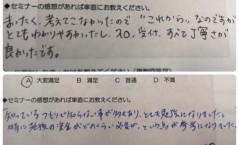 ◆セミナーの感想があれば率直にお教えください。
まったく、考えてこなかったので "これから"、なのですが
とてもわかりやすかったし、受付、すべて丁寧さが
良かったです。
A 大変満足 B 満足 C 普通 D 不満
◆セミナーの感想があれば率直にお教えください。
知っているつもりで知らない事が多くあり、とても勉強になりました。
特に老後の資金がどのくらい必要か、という点が参考になりました。